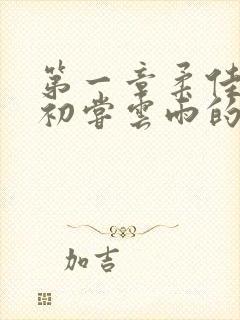 第一章柔佳
初尝雲雨的
加吉